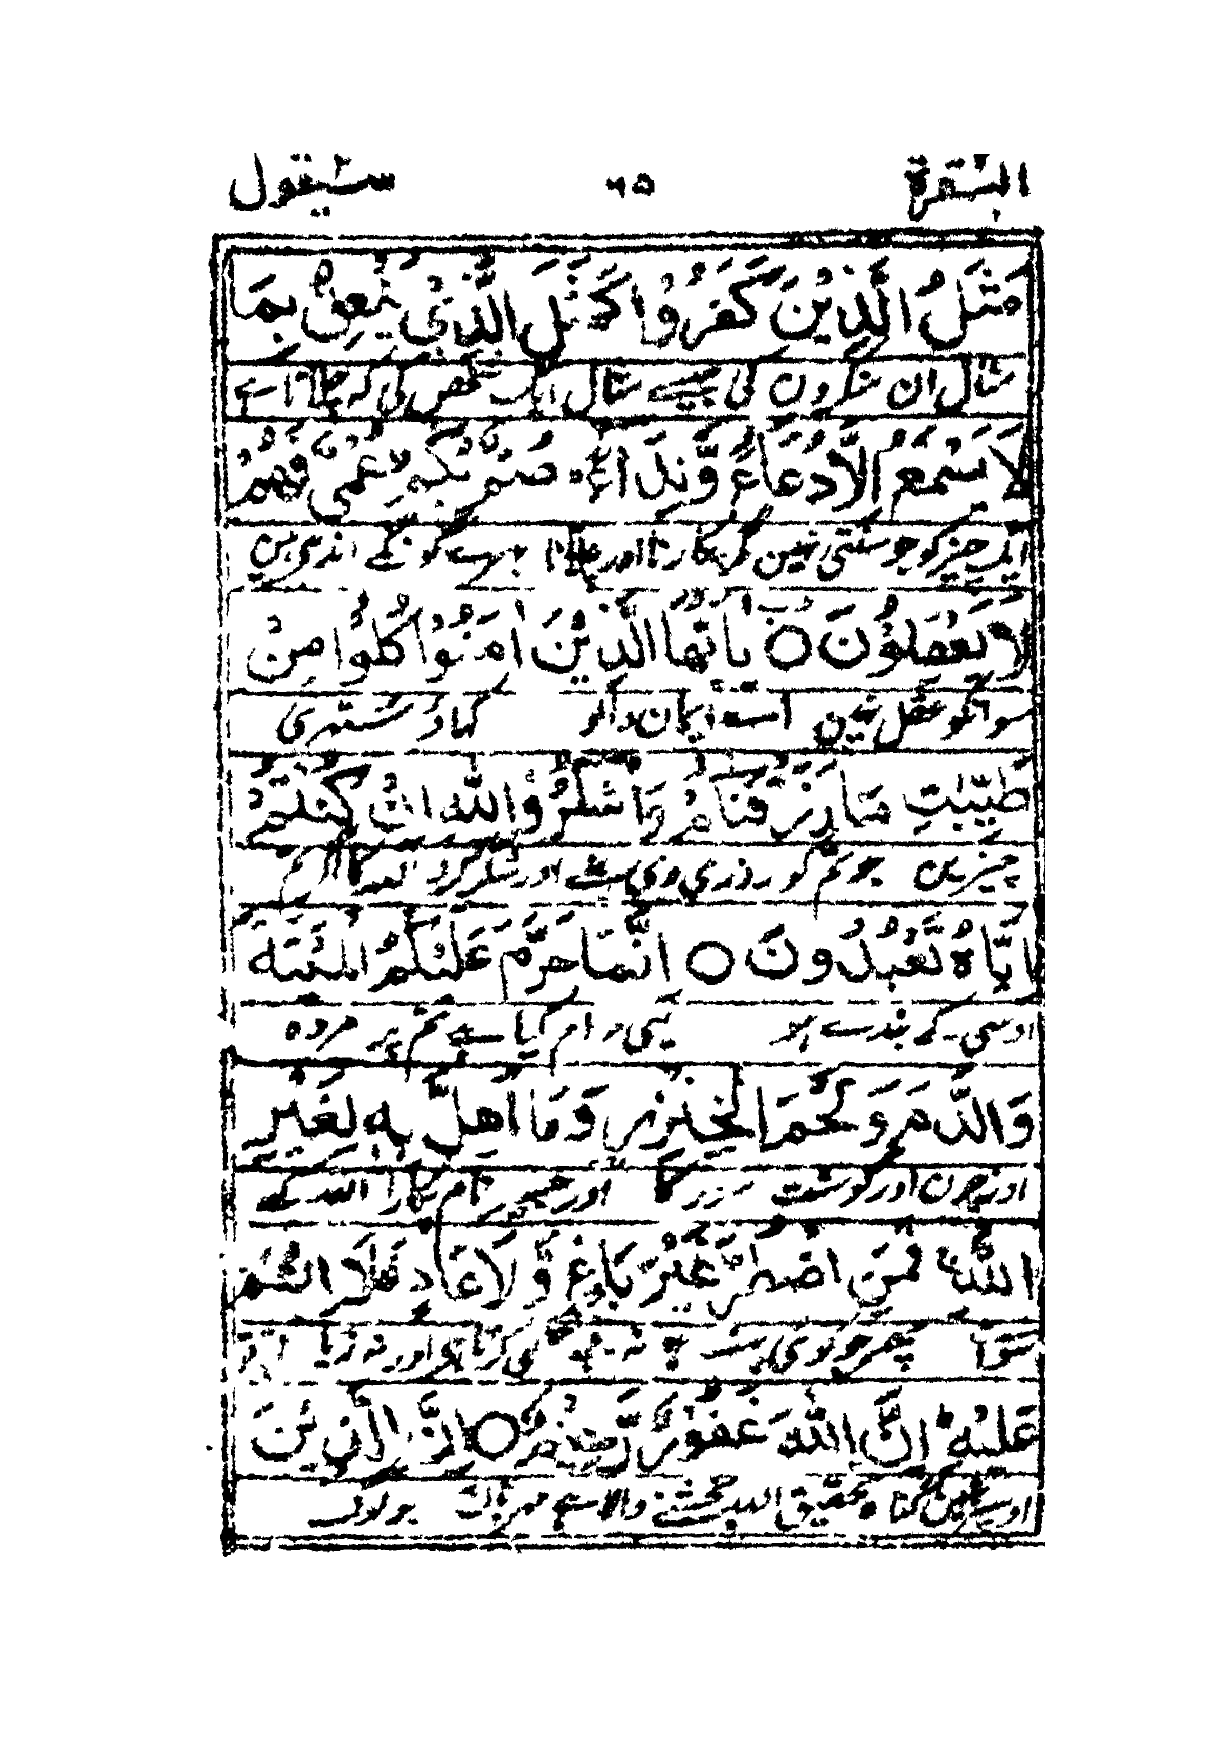 البقرة ٦٥ سيقول
مَثَلُ الَّذِيْنَ كَفَرُوْا كَمَثَلِ الَّذِيْ يَنْعِقُ بِمَا
مثال ان منکروں کی جیسے مثال ایک شخص کی کہ چلاتا ہے
لَا يَسْمَعُ اِلَّا دُعَآءً وَّنِدَآءً صُمٌّۢ بُكْمٌ عُمْيٌ فَهُمْ
ایک چیز کو جو سنتی نہیں مگر پکارنا اور چلانا بہرے گونگے اندھے ہیں
لَا يَعْقِلُوْنَ ○ يٰاَيُّهَا الَّذِيْنَ اٰمَنُوْا كُلُوْا مِنْ
سو انکو عقل نہیں اے ایمان والو کھاؤ ستھری
طَيِّبٰتِ مَا رَزَقْنٰكُمْ وَاشْكُرُوْا لِلّٰهِ اِنْ كُنْتُمْ
چیزیں جو تم کو روزی دی ہمنے اور شکر کرو اللہ کا اگر تم
اِيَّاهُ تَعْبُدُوْنَ ○ اِنَّمَا حَرَّمَ عَلَيْكُمُ الْمَيْتَةَ
اوسی کے بندے ہو یہی حرام کیا ہے تم پر مردہ
وَالدَّمَ وَلَحْمَ الْخِنْزِيْرِ وَمَا اُهِلَّ بِهٖ لِغَيْرِ
اور خون اور گوشت سور کا اور جسپر نام پکارا اللہ کے
اللّٰهِ فَمَنِ اضْطُرَّ غَيْرَ بَاغٍ وَّلَا عَادٍ فَلَآ اِثْمَ
سوا پھر جو کوئی نہ کرتا ہی اور نہ زیا
عَلَيْهِ اِنَّ اللّٰهَ غَفُوْرٌ رَّحِيْمٌ ○ اِنَّ الَّذِيْنَ
اوسپر نہیں گناہ تحقیق اللہ بخشنے والا ہے مہربان جو لوگ